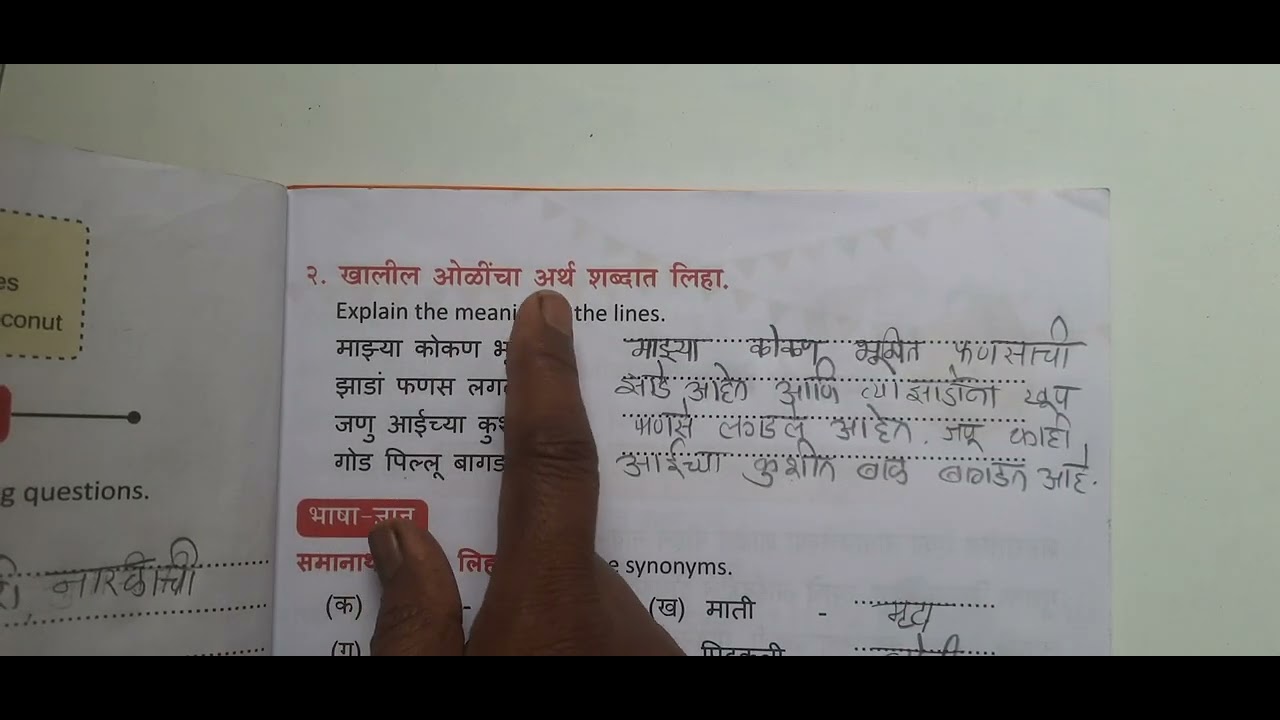 es
conut
g questions.
नारळीची
२. खालील ओळींचा अर्थ शब्दात लिहा.
Explain the meani the lines.
माझ्या कोकण भू
झाडां फणस लग
जणु आईच्या कु
गोड पिल्लू बागड
माझ्या कोकण भूमित फणसाची
झाडे आहेत आणि त्या झाडांना खूप
फणसे लगडले आहेत. जणू काही
आईच्या कुशीत बाळ बागडत आहे.
भाषा-ज्ञान
समाना लि e synonyms.
(क) -
(ख) माती -
(ग)